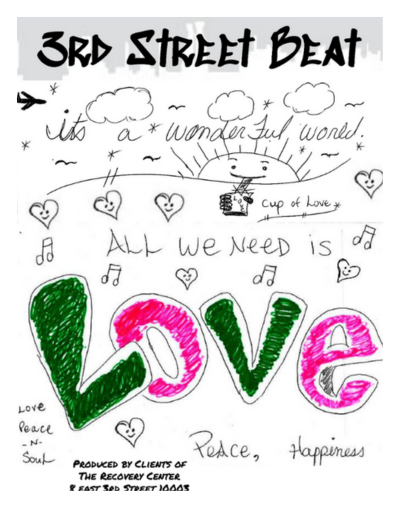 3RD STREET BEAT
its a wonderful world.
Cup of Love
ALL WE NEED is
LOVe
LOVE
Peace
-N-
Soul
PeAce, Happiness
PRODUCED BY CLIENTS OF
THE RECOVERY CENTER
8 EAST 3RD STREET 10003